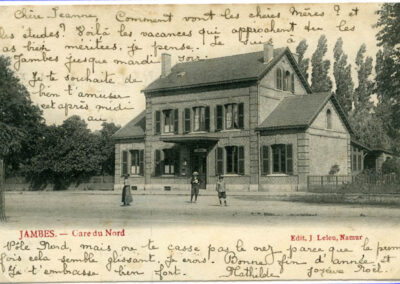 Chère Jeanne, Comment vont les chères Mères ? et
les études ! Voilà les vacances qui approchent du les
as bien méritées, je pense. Je
Jambes jusque mardi soir.
Je te souhaite de
bien t'amuser
cet après midi
au
JAMBES. — Gare du Nord
Edit. J. Leleu, Namur
Pôle Nord, mais ou te casse pas le nez parce que le prom
fois cela semble glissant, je crois. Bonne fin d'année et
Je t'embrasse bien fort. Mathilde Joyeux Noël.